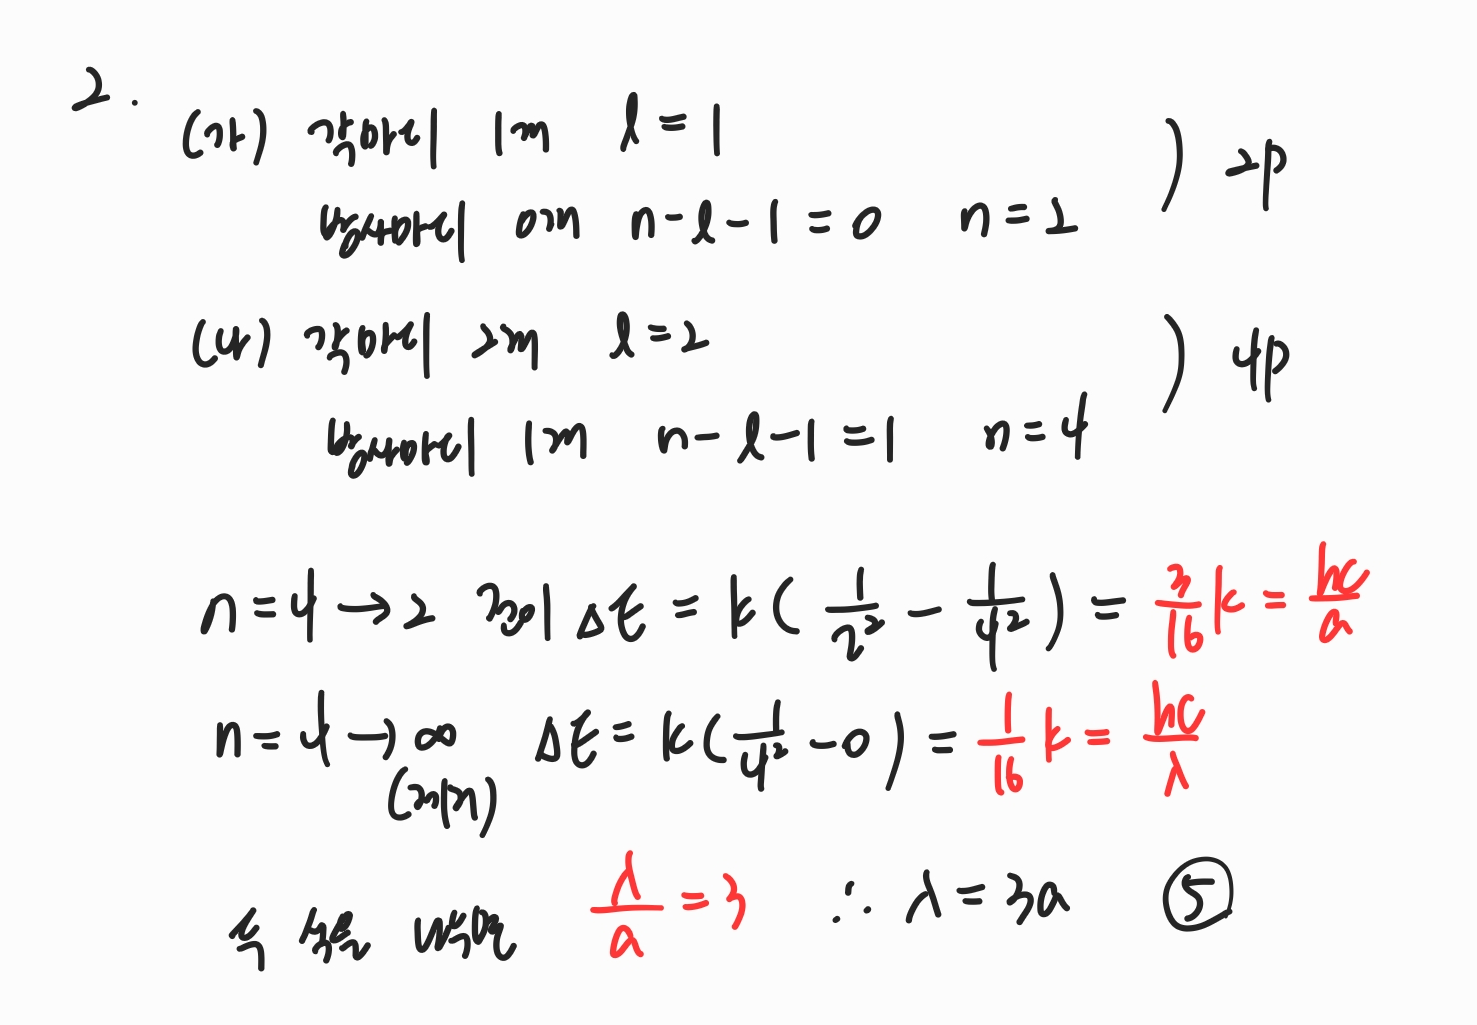 2.
(가) 각마디 1개 l = 1
방사마디 0개 n-l-1=0 n=2 ) 2p
(나) 각마디 2개 l=2
방사마디 1개 n-l-1=1 n=4 ) 4p
n=4→2 전이 ΔE = k(1/2² - 1/4²) = 3/16 k = hc/a
n=4→∞ ΔE = k(1/4² - 0) = 1/16 k = hc/λ
(제거)
두 식을 나누면 λ/a = 3 ∴ λ = 3a ⑤